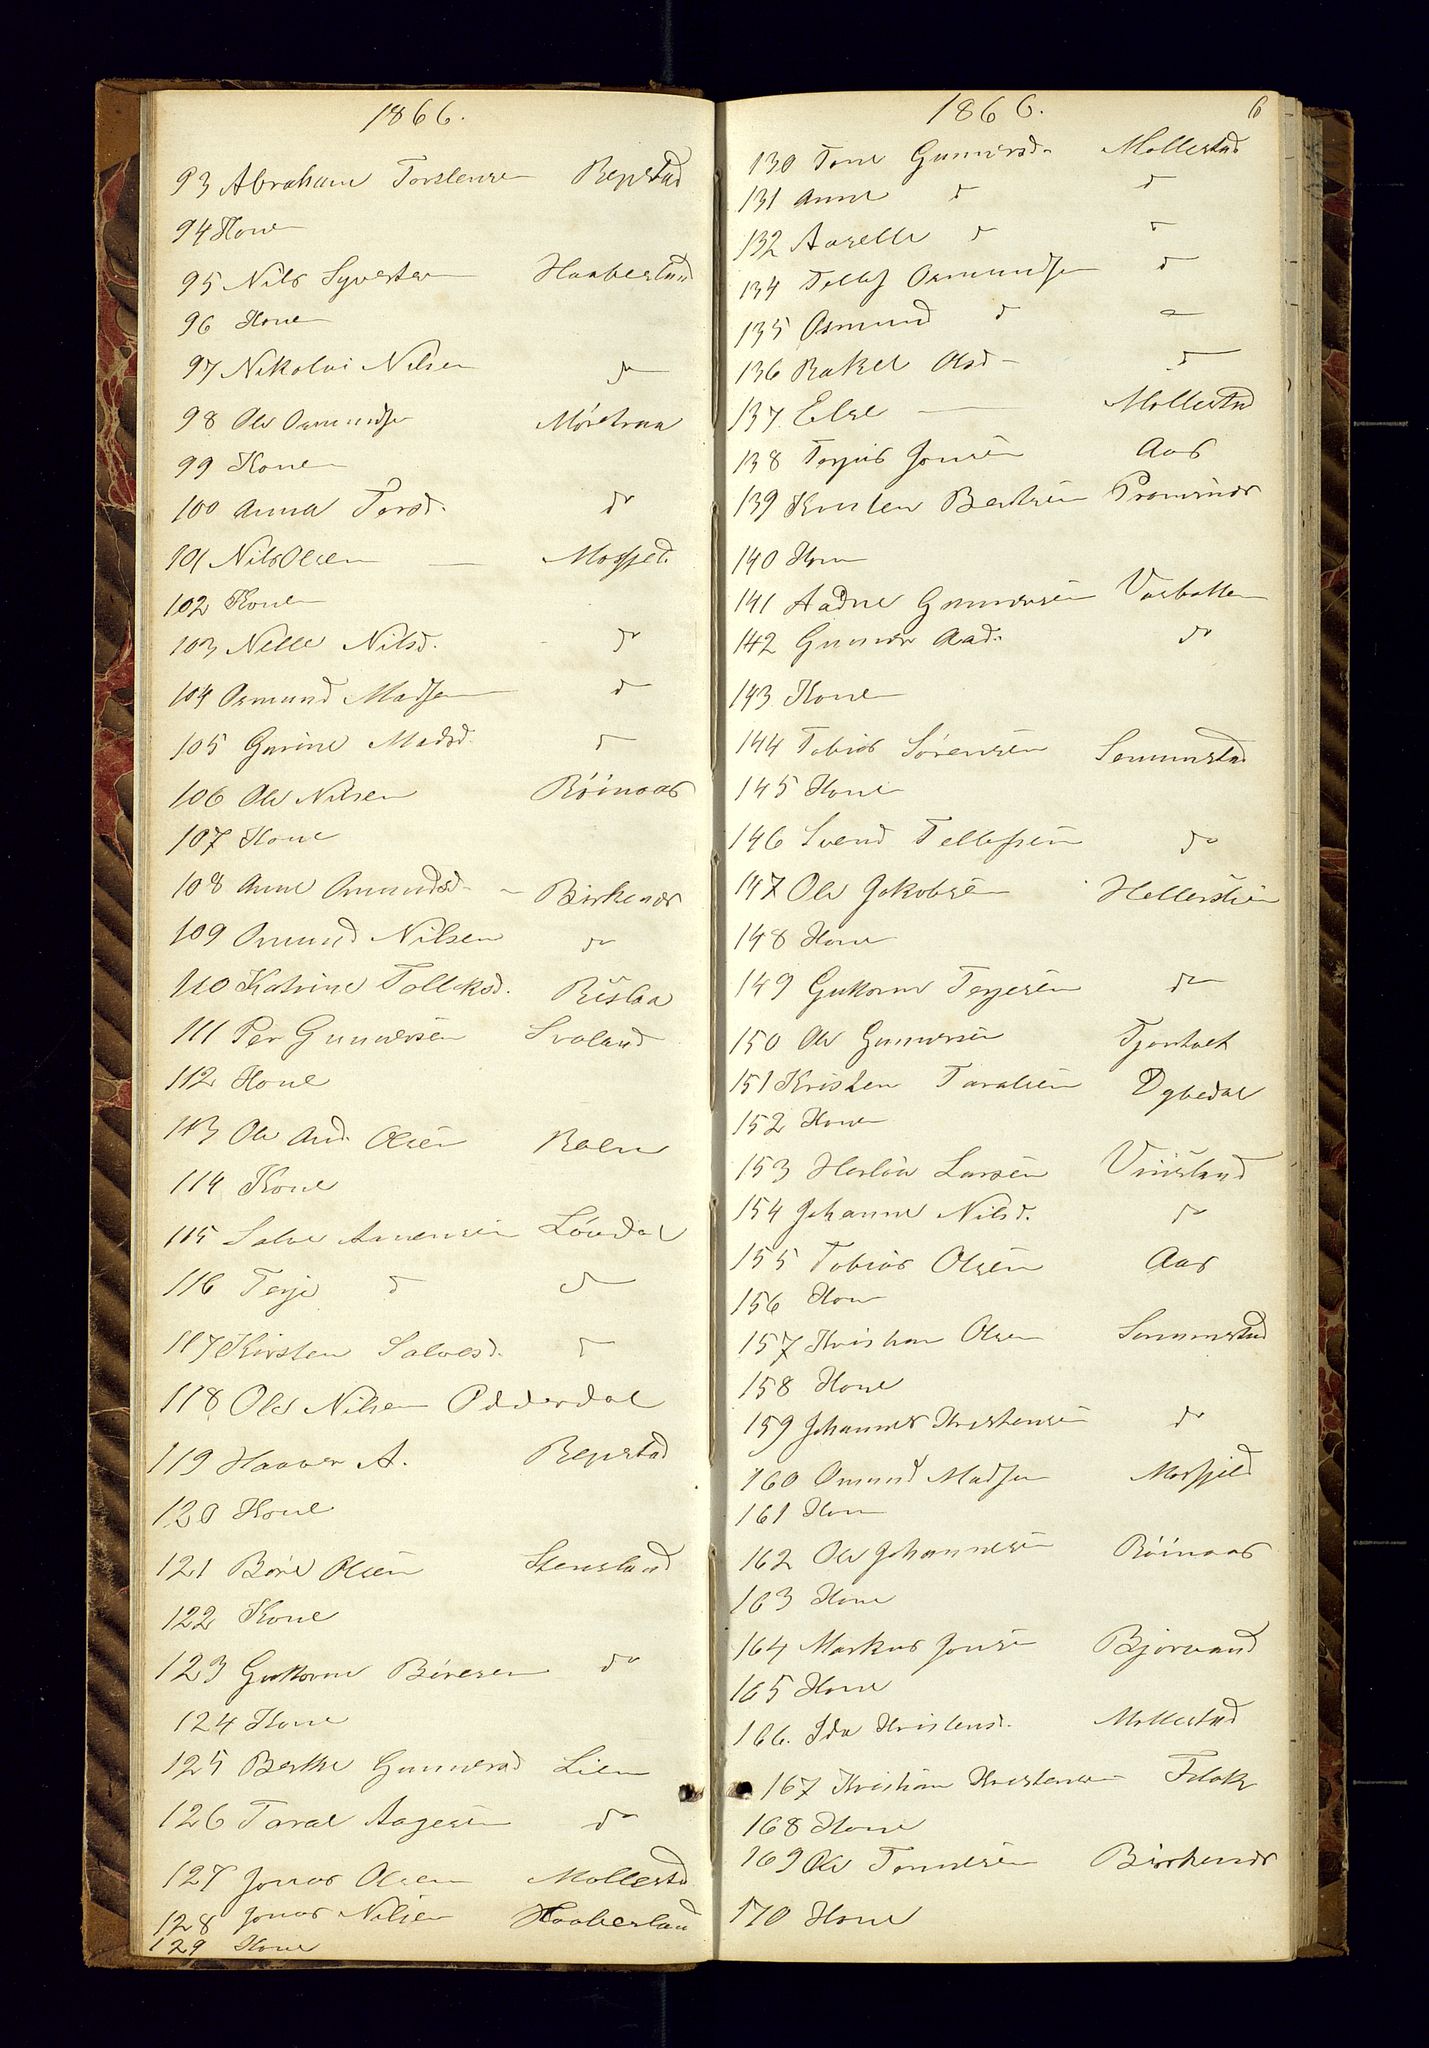 1866.
93 Abraham Torstensen Repstad
94 Kone
95 Nils Syvertsen Haabesland
96 Kone
97 Nikolai Nilsen do
98 Ole Osmundsen
99 Kone
100 Anna Torsd. do
101 Nils Olsen — Mosfjeld
102 Kone
103 Nelle Nilsd. do
104 Osmund Madsen d
105 Gurine Madsd. d
106 Ole Nilsen Röinaas
107 Kone
108 Anne Osmundsd. Birkenæs
109 Osmund Nilsen do
110 Katrine Tolleksd.
111 Per Gunnersen Svaland
112 Kone
113 Ole And. Olsen Roen
114 Kone
115 Salve Aanensen Løvdal
116 Terje d d
117 Kirsten Salvesd. d
118 Ole Nilsen Odderdal
119 Haaver A. Repstad
120 Kone
121 Børe Olsen Stensland
122 Kone
123 Guttorm Børesen do
124 Kone
125 Berthe Gunnersd Lien
126 Taral Aagesen do
127 Jonas Olsen Mollestd
128 Jonas Nilsen Haabeslan
129 Kone
1866. 6
130 Tone Gunnersd. Mollestad
131 Anne d d
132 Aaselle d d
134 Tellef Osmundsen d
135 Osmund d
136 Rakel Olsd d
137 Else — Mollestad
138 Terjus Jonsen Aas
139 Kristen Bertsen
140 Kone
141 Aadne Gunnersen Vasbotten
142 Gunner Aad. do
143 Kone
144 Tobias Sørensen Senumstad
145 Kone
146 Svend Tellefsen do
147 Ole Jakobsen
148 Kone
149 Guttorm Terjesen do
150 Ole Gunnersen
151 Kristen Taralsen Dybedal
152 Kone
153 Larsen
154 Johanne Nilsd. do
155 Tobias Olsen Aas
156 Kone
157 Kristian Olsen Senumstad
158 Kone
159 Johannes Kristensen do
160 Osmund Madsen Mosfjeld
161 Kone
162 Ole Johannesen Röinaas
163 Kone
164 Markus Jensen Bjorvand
165 Kone
166. Ida Kristensd. Mollestad
167 Kristian Kristensen Flak
168 Kone
169 Ole Tonnesen Birkenæs
170 Kone